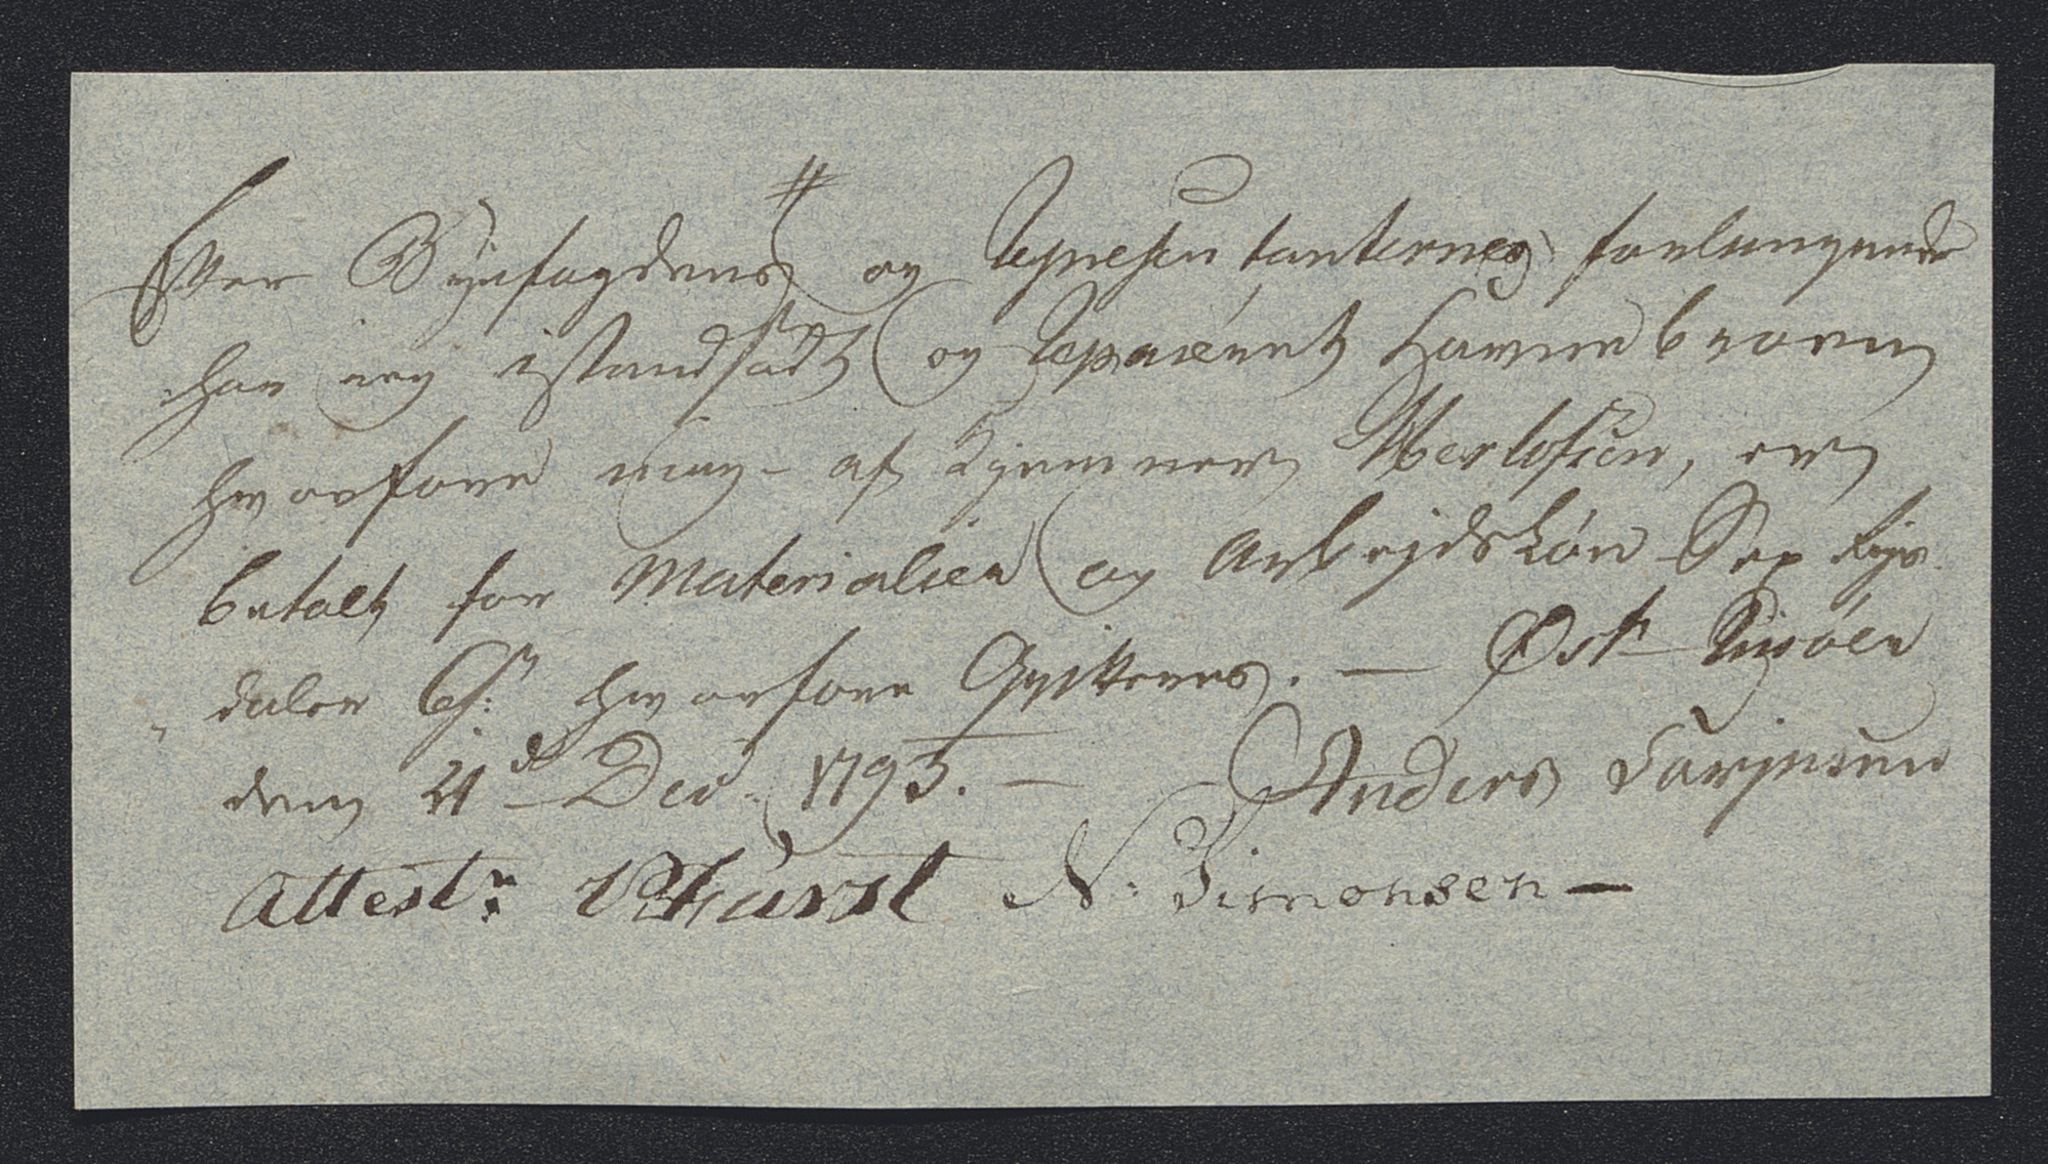 Efter Byefogdens og Representanternes forlangende
har ieg istandsadt og Repareret Havnebroen
hvorfore mig af Kjemner Herlofsen, er
betalt for Materialier og Arbejdslön Sex Rigs
daler hvorfore Qvitteres. — Øst Riisöer
den 21 d Dec. 1793. — Anders Torjusen
Attest: N: Simonsen —